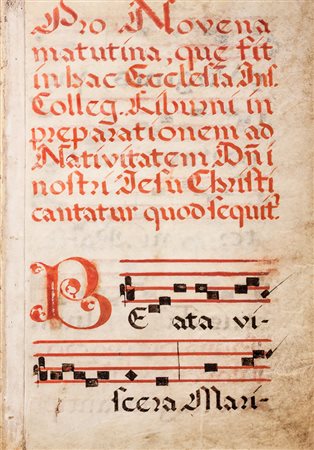 Pro Novena
matutina, quę fit
in hac Ecclesia Ins.
Colleg. Liburni in
preparationem ad
Nativitatem Dn̄i
nostri Jesu Christi
cantatur quod sequit.̄
BEata vi-
scera Mari-